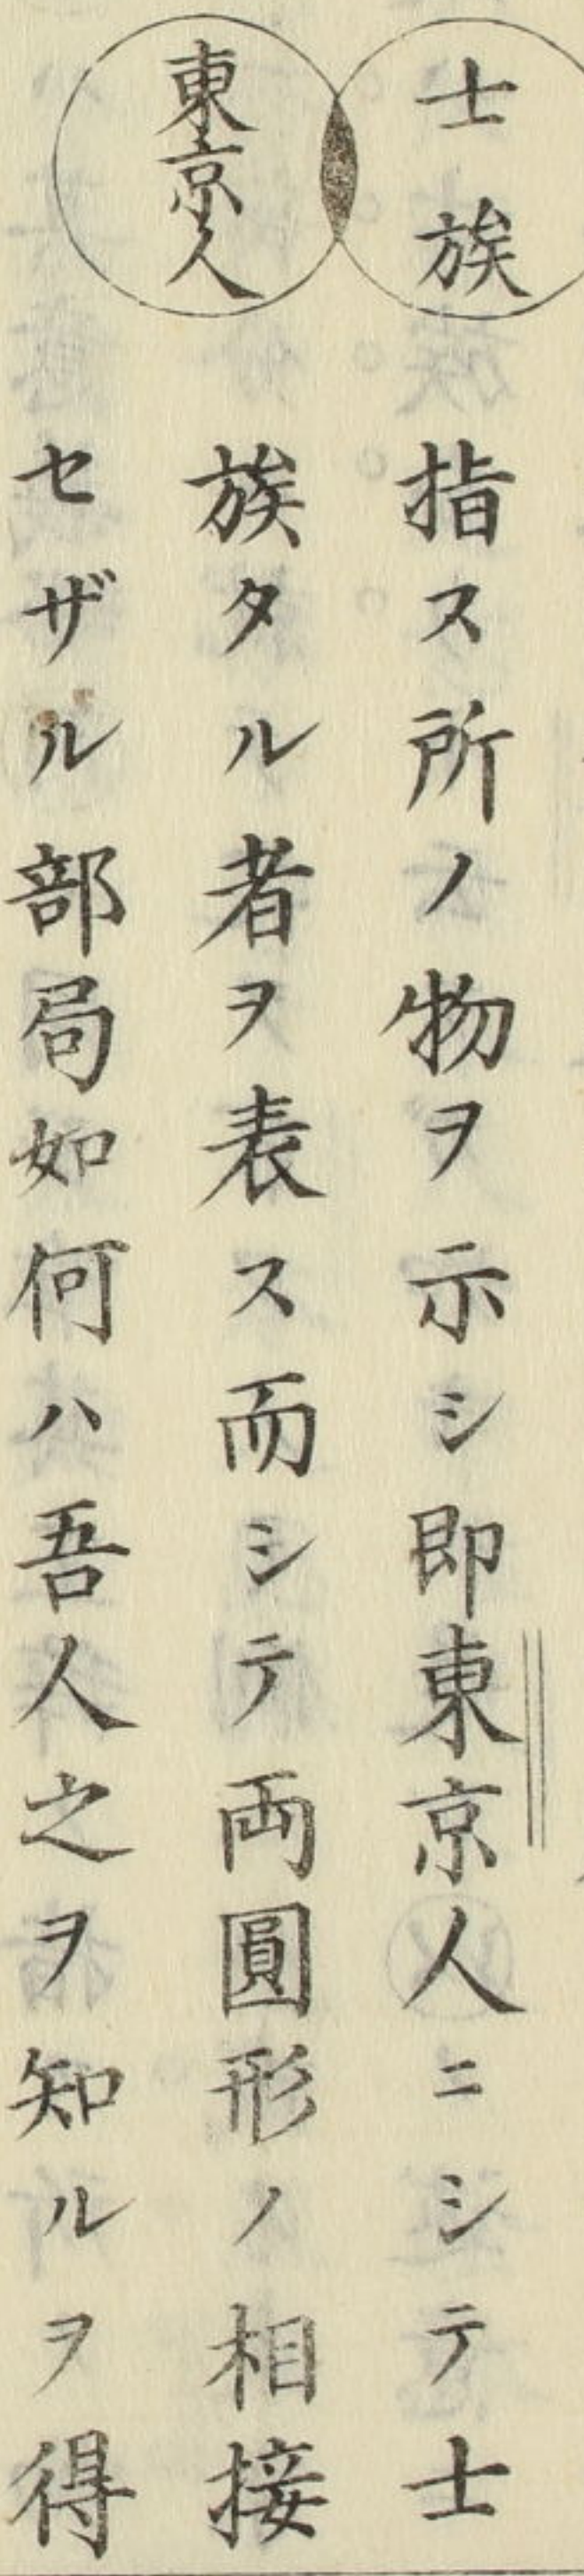 士族
東京人
指ス所ノ物ヲ示シ即東京人ニシテ士
族タル者ヲ表ス而シテ両圓形ノ相接
セザル部局如何ハ吾人之ヲ知ルヲ得